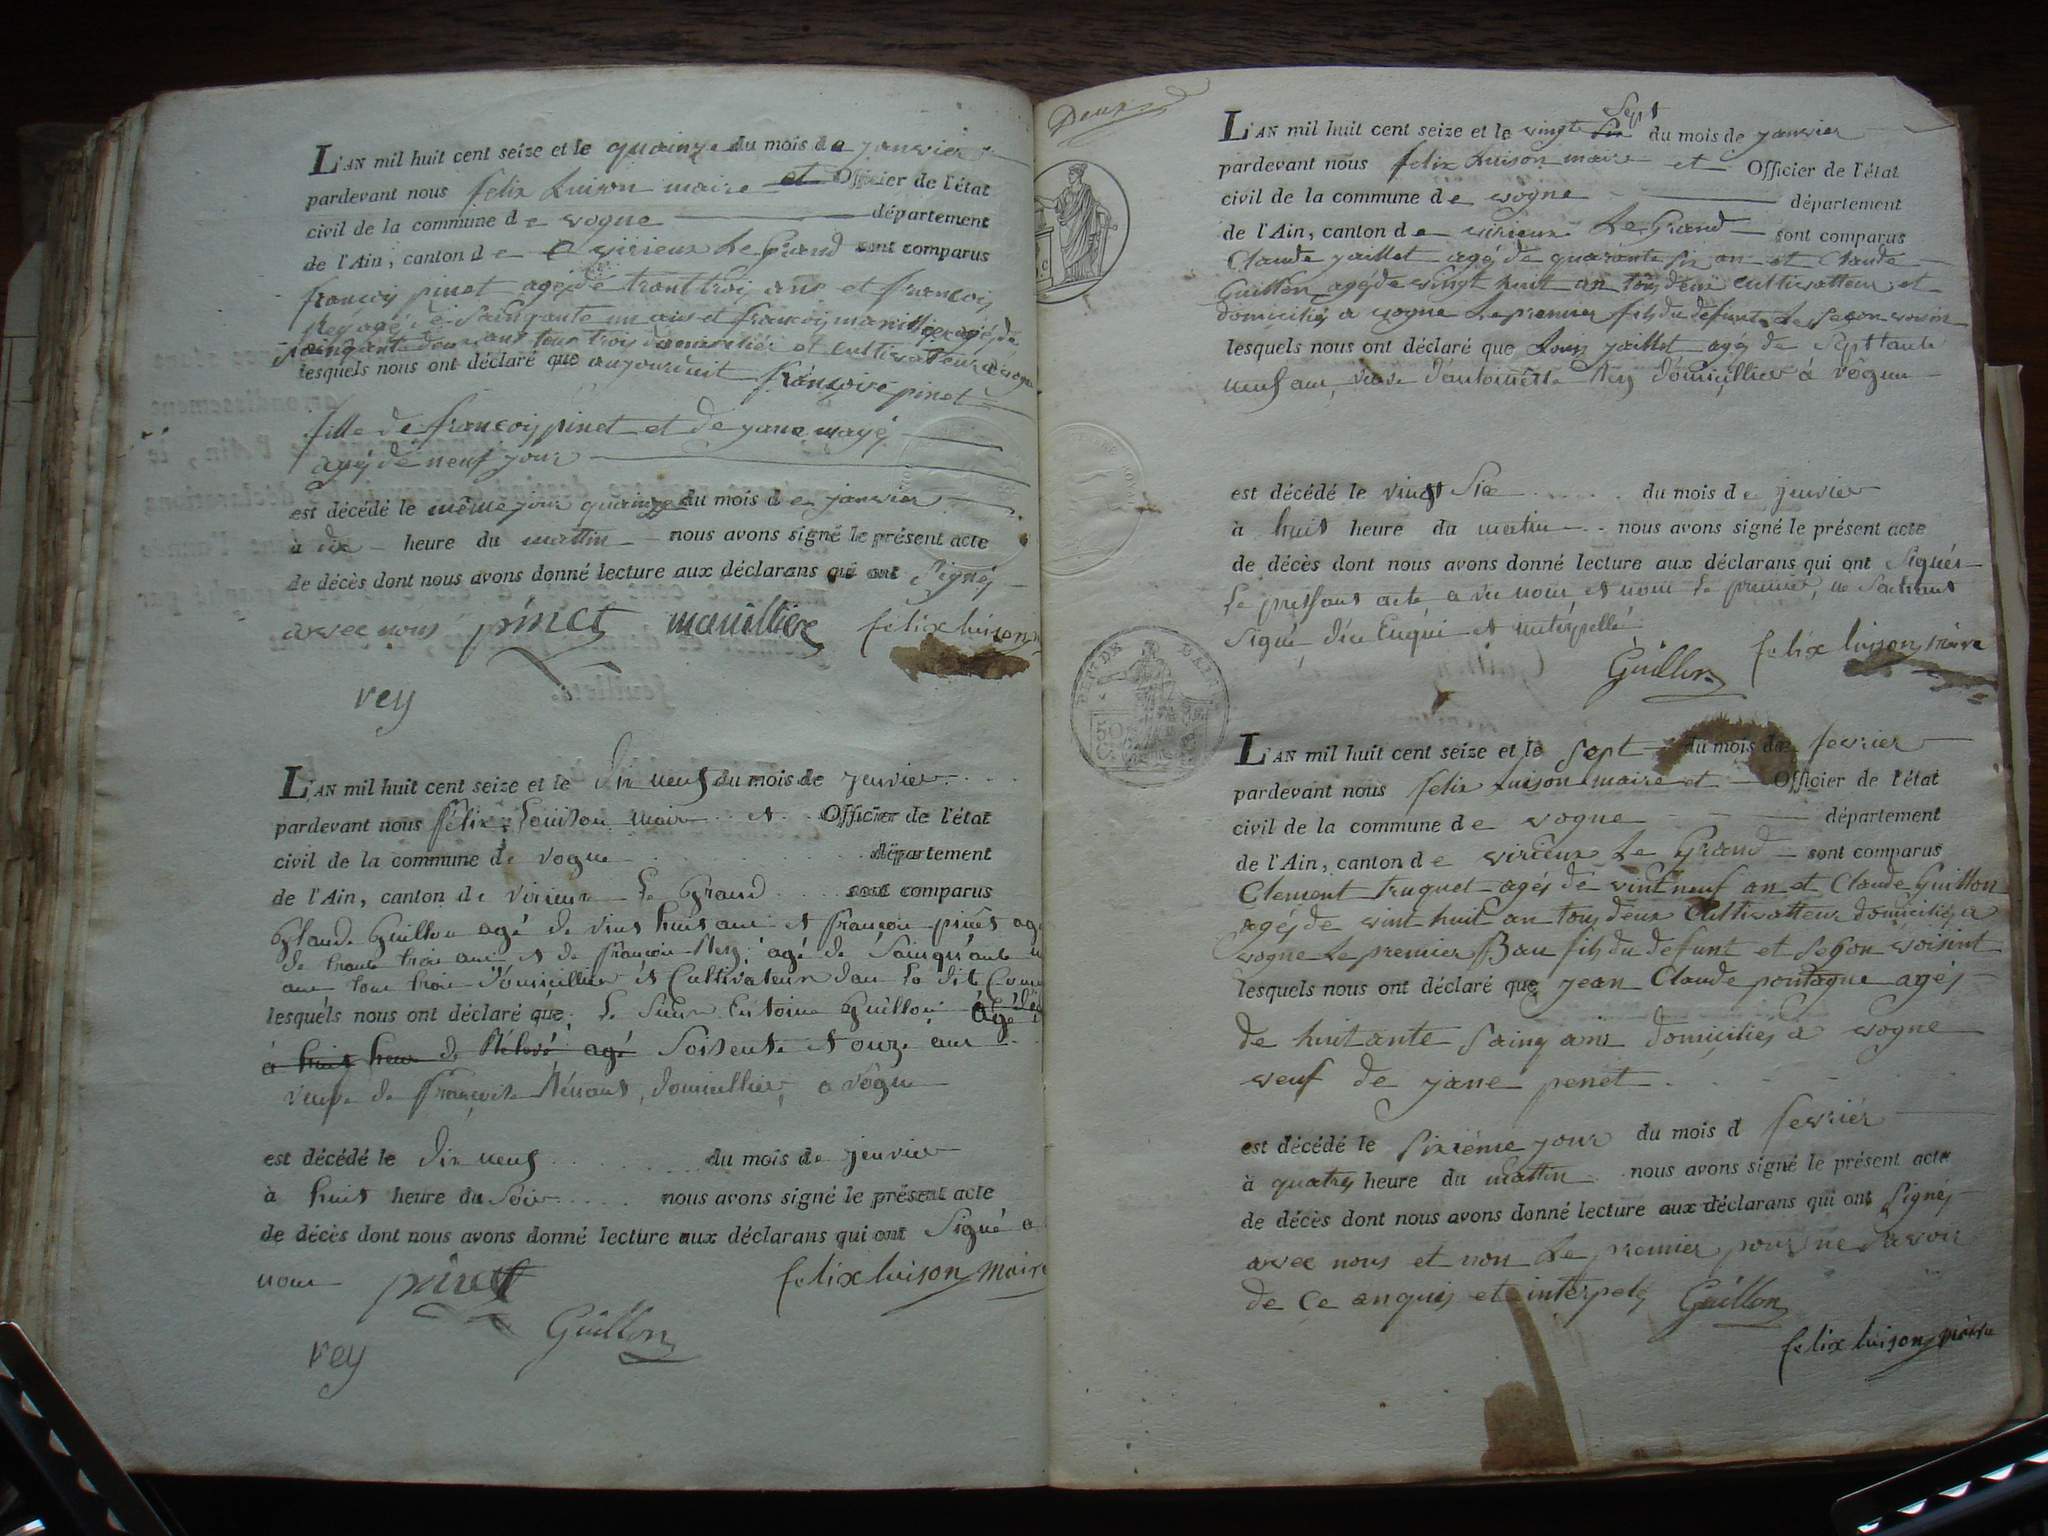 L'AN mil huit cent seize et le quainze du mois de janvier
pardevant nous felix Luison maire et Officier de l'état
civil de la commune de vogne département
de l'Ain, canton de virieux Le Grand sont comparus
françois pinet agé de trant trois ans et françois
Rey agé de Sainqante un ans et françois
Sainqante deux ans tous trois et cultivatteur a
lesquels nous ont déclaré que aujourduit françoise pinet
fille de françois pinet et de jane
agé de neuf jour
est décédé le même jour quainze du mois de janvier
à dix heure du mattin nous avons signé le présent acte
de décès dont nous avons donné lecture aux déclarans qui ont Signés
avec nous pinet felix luison
rey
L'AN mil huit cent seize et le Dix neuf du mois de jenvier
pardevant nous félix Louison mair et Officier de l'état
civil de la commune de vogne département
de l'Ain, canton de virieux Le Grand sont comparus
Glaude Guillon agé de vint huit ans et françois pinet agé
de trante trois ans et de françois Rey agé de Sainquante
ans tous trois Domicillier et Cultivateur dans La dit
lesquels nous ont déclaré que Le Sieur Entoine Guillon agé
à huit heur de agé Soissente et onze ans
veuf de françoise domicillier a vôgne
est décédé le Dix neuf du mois de jenvier
à huit heure du Soir nous avons signé le présent acte
de décès dont nous avons donné lecture aux déclarans qui ont Signé a
nous pinet felix luison maire
Guillon
rey
Deux
L'AN mil huit cent seize et le vingt six Sept du mois de janvier
pardevant nous felix Luison maire et Officier de l'état
civil de la commune de vogne département
de l'Ain, canton de virieux Le Grand sont comparus
Claude jaillet agé de quarante six an et Claude
Guillon agé de vingt huit an tous deux cultivatteur et
domiciliés a vogne Le premier fils du défunt Le Segon voisin
lesquels nous ont déclaré que Louis jaillet agé de Septtante
neuf ans veuve d'antoinette Rey domicillier à vôgne
est décédé le vingt Six du mois de jenvier
à huit heure du matin nous avons signé le présent acte
de décès dont nous avons donné lecture aux déclarans qui ont Signés
Le pressant acte a vec nous et nom Le premier ne Sachant
Signé de et
Guillon felix luison maire
DEP.T DE L'AIN
50 C.
L'AN mil huit cent seize et le Sept du mois de fevrier
pardevant nous felix Luison maire et Officier de l'état
civil de la commune de vogne département
de l'Ain, canton de virieux Le Grand sont comparus
Clement truquet agés de vint neuf an et Claude Guillon
agés de vint huit an tous deux Cultivatteur domiciliés a
vogne Le premier Bau fils du defunt et Segon voisint
lesquels nous ont déclaré que jean Claude pontagne agés
de huitante Sainq ans domiciliés a vogne
veuf de jane penet
est décédé le Sixiéme jour du mois d fevriér
à quatres heure du mattin nous avons signé le présent acte
de décès dont nous avons donné lecture aux déclarans qui ont Signés
avec nous et non Le premier pour ne Savoir
de Ce anquis et interpelés Guillon
felix luison maire